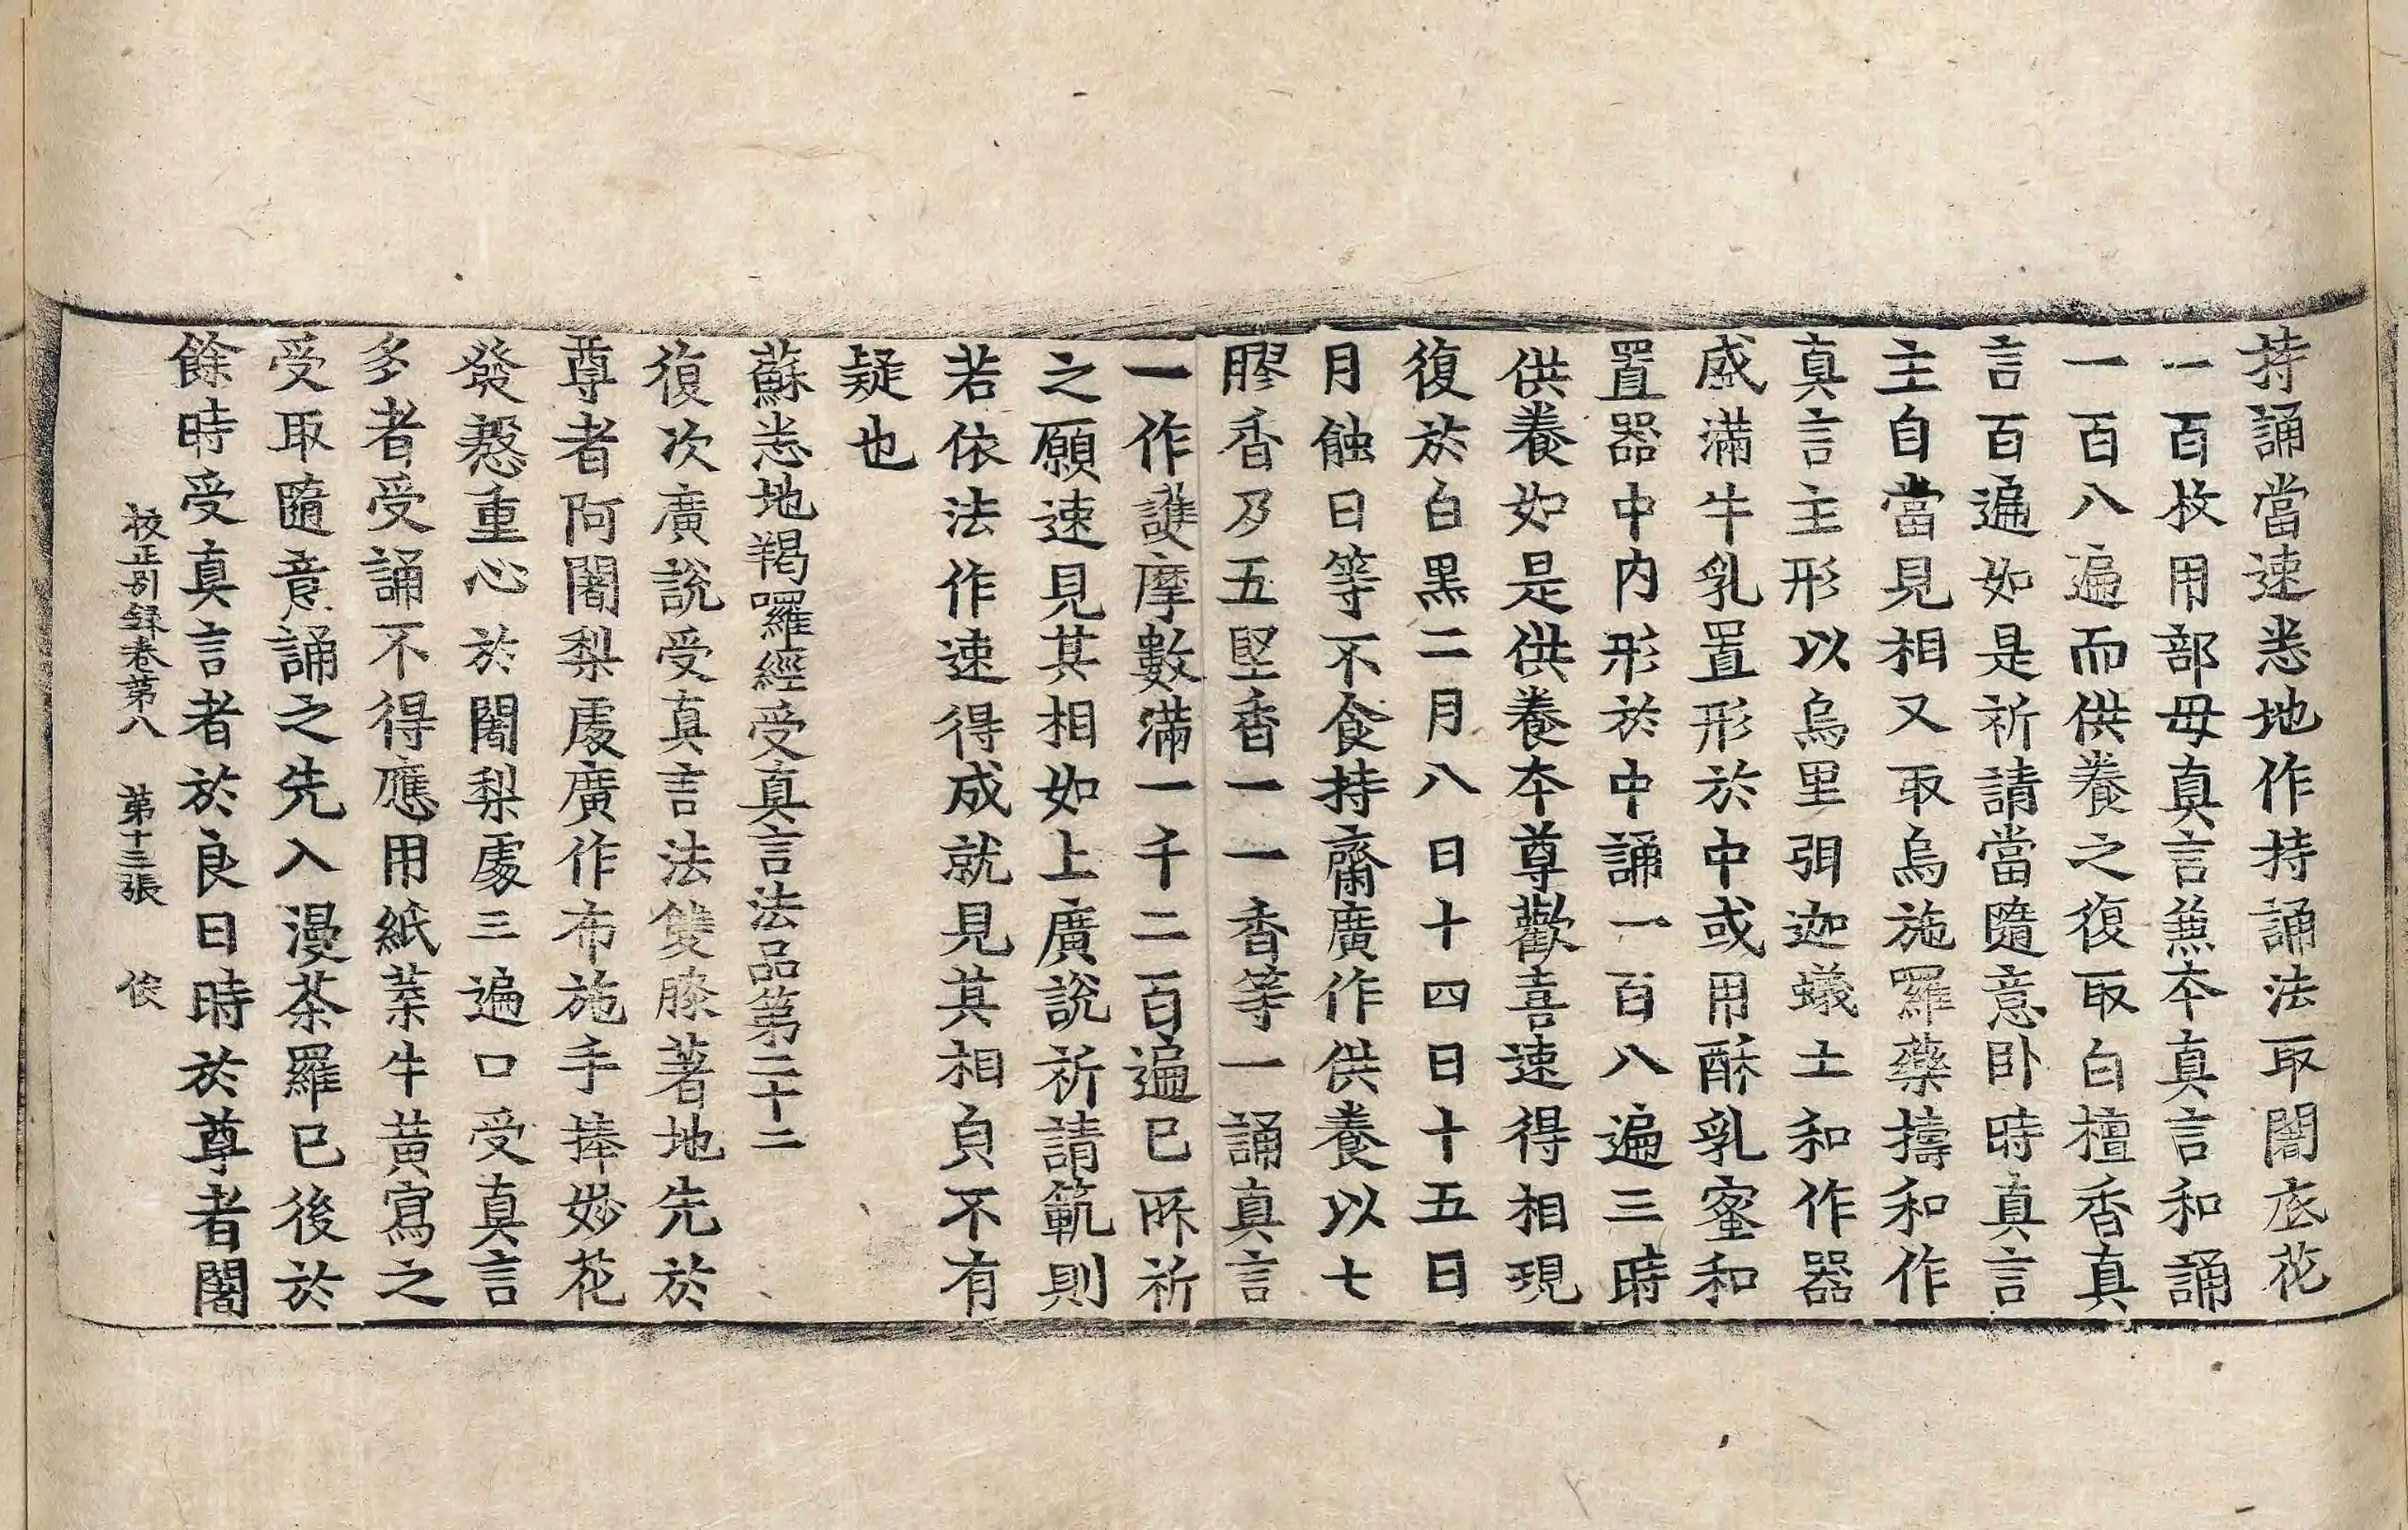 持誦當速悉地作持誦法取闍底花
一百枚用部母真言兼本真言和誦
一百八遍而供養之復取白檀香真
言百遍如是祈請當隨意卧時真言
主自當見相又取烏施羅藥擣和作
真言主形以烏里弭迦蟻土和作器
盛滿牛乳置形於中或用酥乳蜜和
置器中内形於中誦一百八遍三時
供養如是供養本尊歡喜速得相現
復於白黑二月八日十四日十五日
月蝕日等不食持齋廣作供養以七
膠香及五堅香一一香等一誦真言
一作護摩數滿一千二百遍已所祈
之願速見其相如上廣說祈請範則
若依法作速得成就見其相負不有
疑也
蘇悉地羯囉經受真言法品第二十二
復次廣說受真言法雙膝著地先於
尊者阿闍梨處廣作布施手捧妙花
發慇重心於闍梨處三遍口受真言
多者受誦不得應用紙葉牛黃寫之
受取隨意誦之先入漫茶羅已後於
餘時受真言者於良日時於尊者闍
校正別録卷第八　第十三張　俠